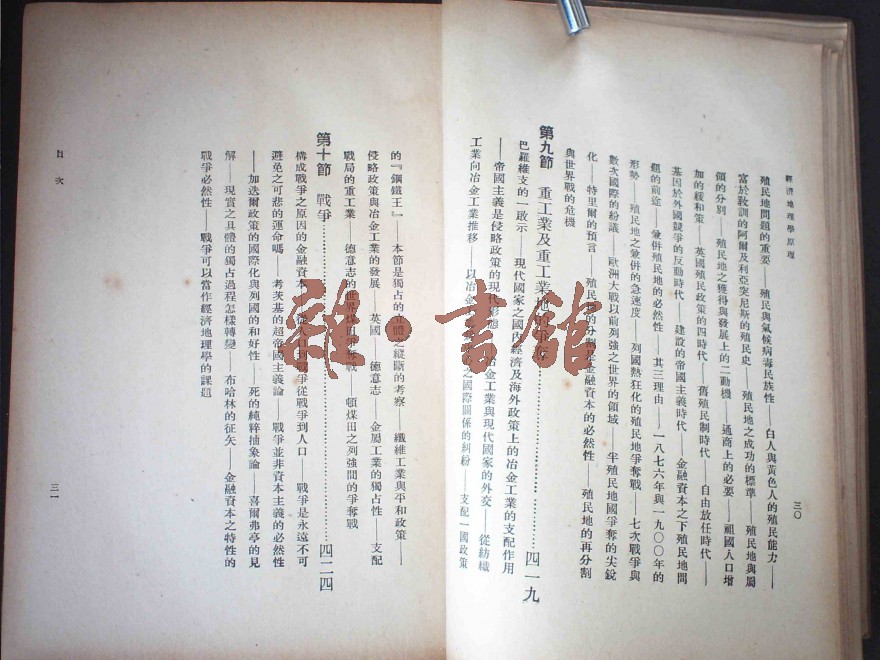 經濟地理學原理
三〇
殖民地問題的重要——殖民與氣候病毒民族性——白人與黃色人的殖民能力——
富於敎訓的阿爾及利亞突尼斯的殖民史——殖民地之成功的標準——殖民地與屬
領的分別——殖民地之獲得與發展上的二動機——通商上的必要——祖國人口增
加的緩和策——英國殖民政策的四時代——舊殖民制時代——自由放任時代——
基因於外國競爭的反動時代——建設的帝國主義時代——金融資本之下殖民地問
題的前途——彙併殖民地的必然性——其三理由——一八七六年與一九〇〇年的
形勢——殖民地之彙併的急速度——列國熱狂化的殖民地爭奪戰——七次戰爭與
數次國際的紛議——歐洲大戰以前列強之世界的領域——半殖民地國爭奪的尖銳
化——特里爾的預言——殖民地的分割是金融資本的必然性——殖民地的再分割
與世界戰的危機
第九節 重工業及重工業地的爭奪…………四一九
巴羅維支的一啟示——現代國家之國內經濟及海外政策上的冶金工業的支配作用
——帝國主義是侵略政策的現代形態——冶金工業與現代國家的外交——從紡織
工業向冶金工業推移——以冶金 之國際關係的糾紛——支配一國政策
的『鋼鐵王』——本節是獨占的 體之縱斷的考察——纖維工業與平和政策——
侵略政策與冶金工業的發展——英國——德意志——金屬工業的獨占性——支配
戰局的重工業——德意志的世界煤田爭奪戰——頓煤田之列強間的爭奪戰
第十節 戰爭…………四二四
構成戰爭之原因的金融資本——從人口到戰爭從戰爭到人口——戰爭是永遠不可
避免之可悲的運命嗎——考茨基的超帝國主義論——戰爭並非資本主義的必然性
——加迭爾政策的國際化與列國的和好性——死的純粹抽象論——喜爾弗亭的見
解——現實之具體的獨占過程怎樣轉變——布哈林的征矢——金融資本之特性的
戰爭必然性——戰爭可以當作經濟地理學的課題
目次
三一
雜·書館